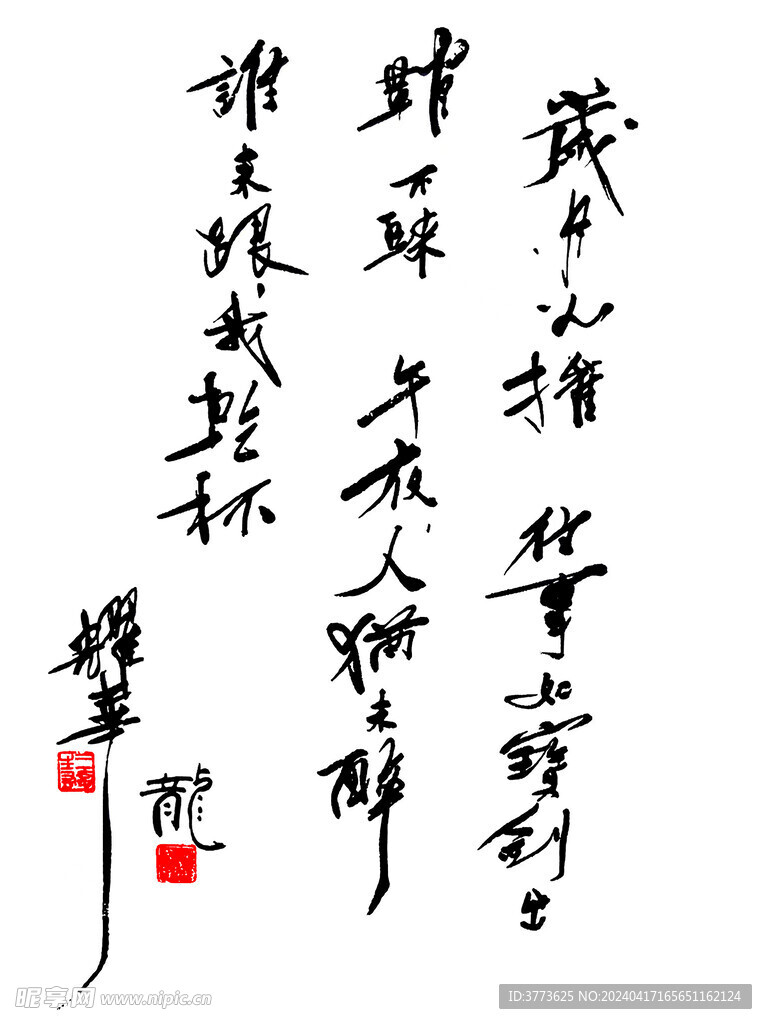 歲月 往事如寶劍出
不 午夜人猶未醉
誰來跟我乾杯
耀華
龍
昵享网 www.nipic.cn
ID:3773625 NO:20240417165651162124